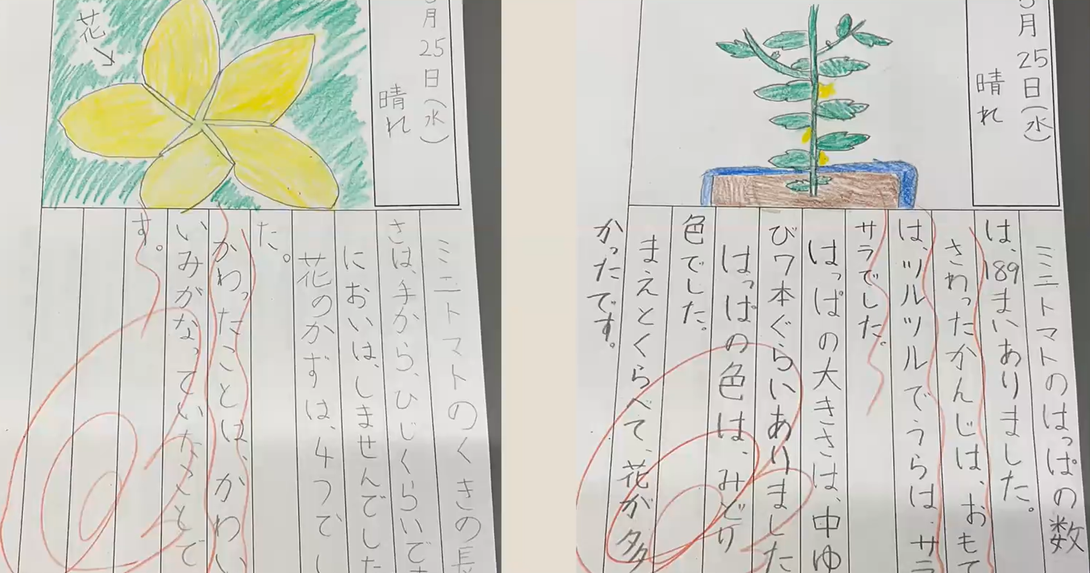 花
5月25日(水)
晴れ
ミニトマトのくきの長
さは、手から、ひじくらいで
においは、しませんでした
花のかずは、4つでし
た。
かわったことは、かわい
いみがなっていたことで
す。
5月25日(水)
晴れ
ミニトマトのはっぱの数
は、189まいありました。
さわったかんじは、おもて
は、ツルツルでうらは、サラ
サラでした。
はっぱの大きさは、中ゆ
び7本ぐらいありました
はっぱの色は、みどり
色でした。
まえとくらべて、花が多
かったです。